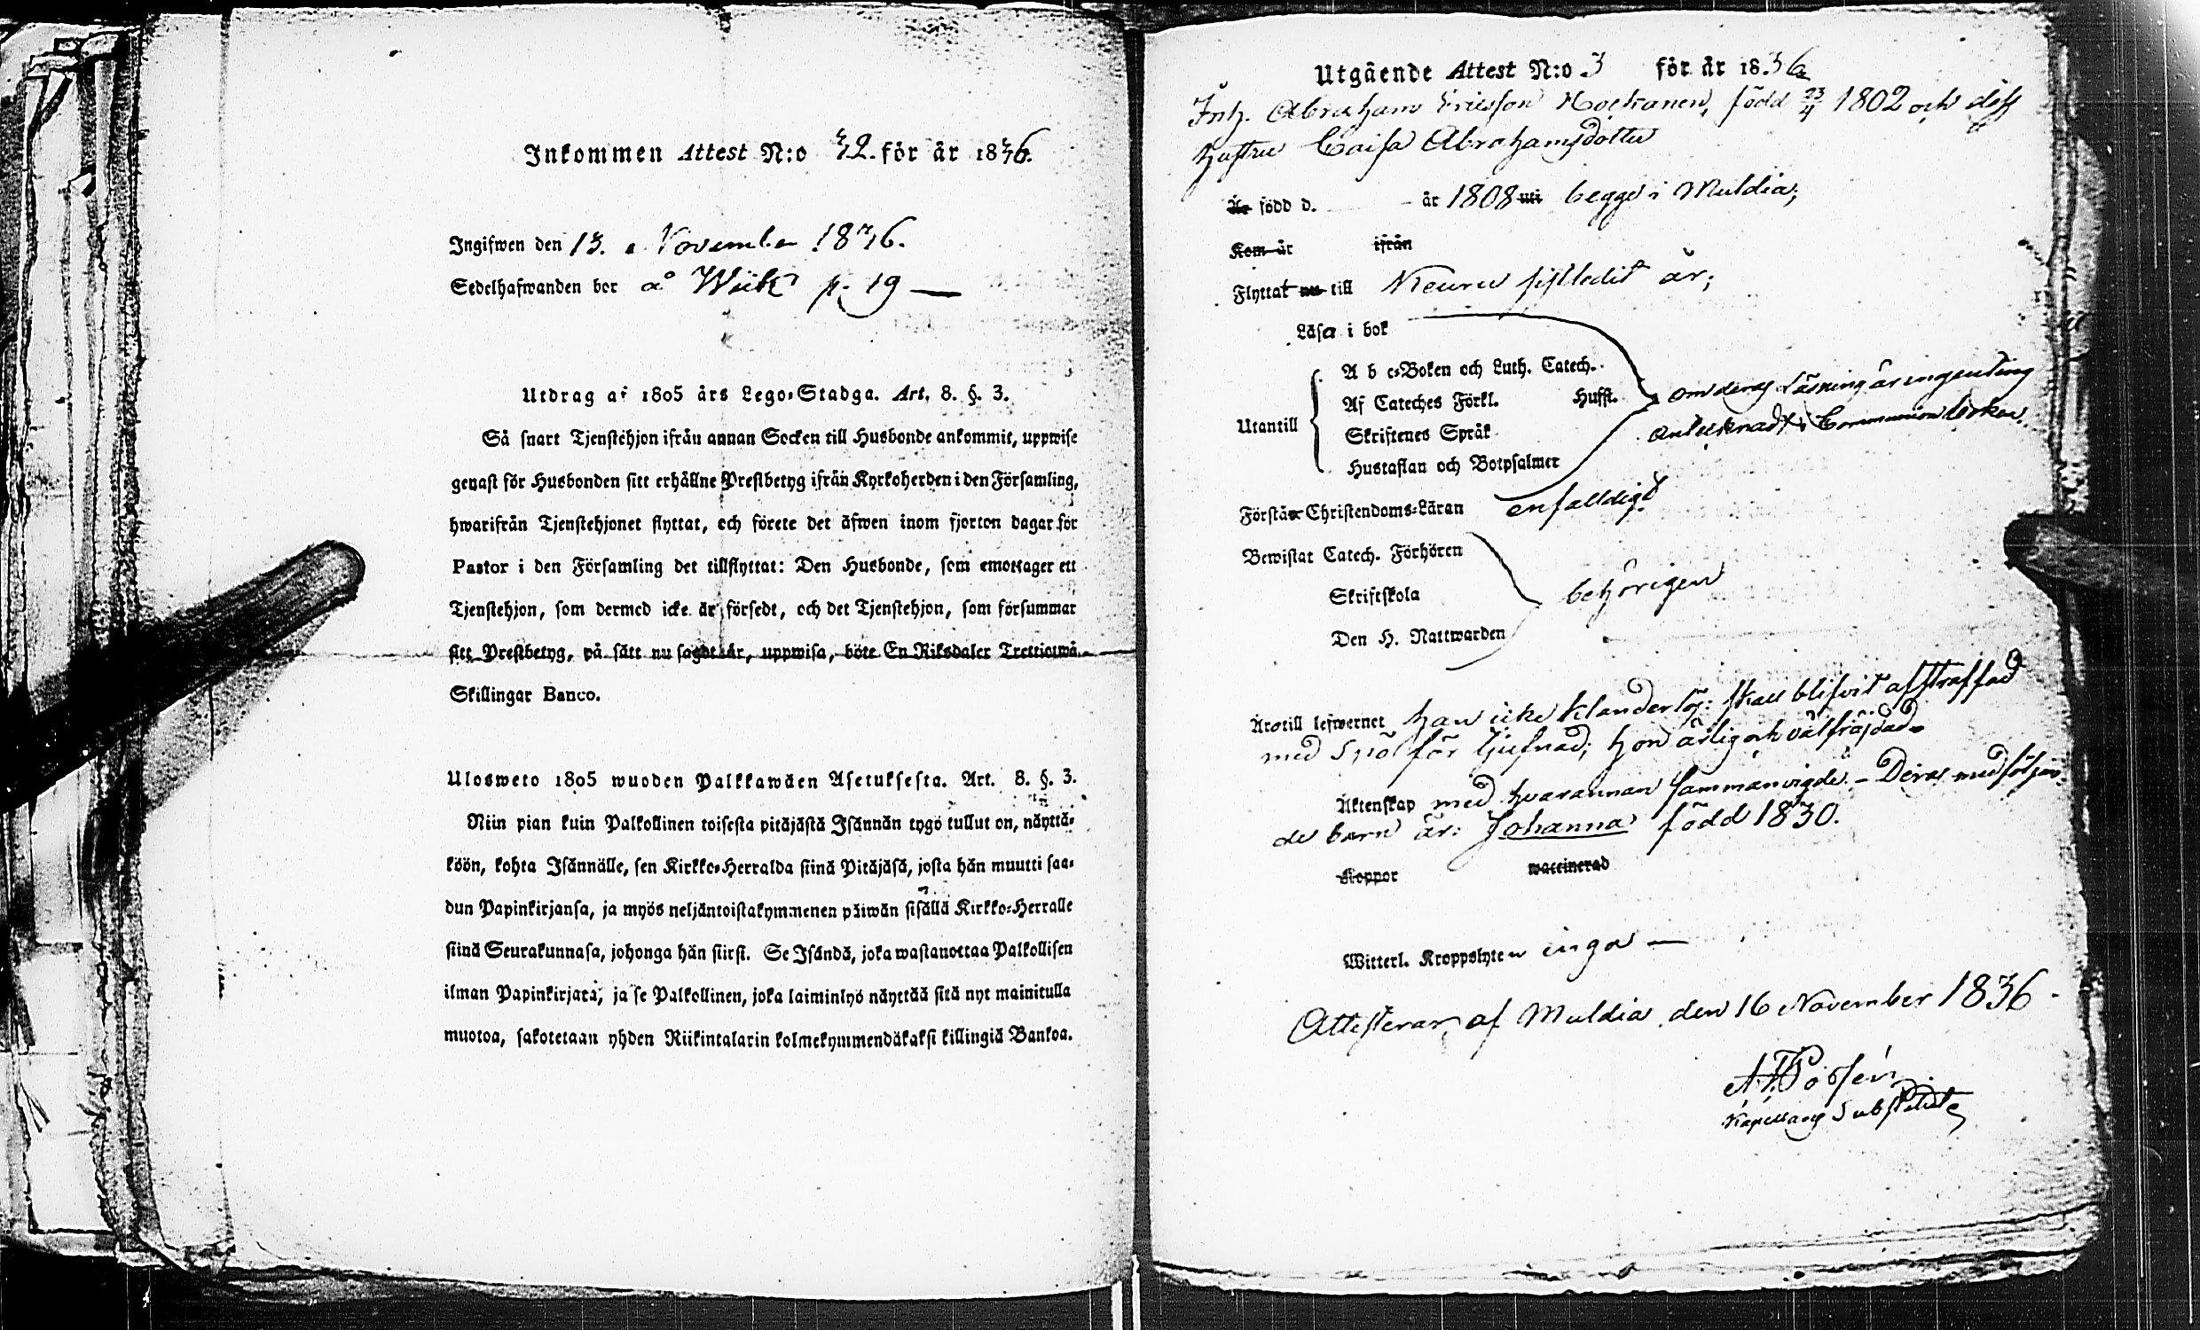 Inkommen Attest N:o 32. för år 1836.
Ingifwen den 13. November 1836.
Sedelhafwanden bor å Wiik p. 19 —
Utdrag af 1805 års Lego-Stadga. Art. 8. §. 3.
Så snart Tjenstehjon ifrån annan Socken till Husbonde ankommit, uppwise
genast för Husbonden sitt erhållne Prestbetyg ifrån Kyrkoherden i den Församling,
hwarifrån Tjenstehjonet flyttat, och förete det äfwen inom fjorton dagar för
Pastor i den Församling det tillflyttat: Den Husbonde, som emottager ett
Tjenstehjon, som dermed icke är försedt, och det Tjenstehjon, som försummar
sitt Prestbetyg, på sätt nu sagdt är, uppwisa, böte En Riksdaler Trettiotwå
Skillingar Banco.
Ulosweto 1805 wuoden Palkkawäen Asetuksesta. Art. 8. §. 3.
Niin pian kuin Palkollinen toisesta pitäjästä Isännän tygö tullut on, näyttä-
köön, kohta Isännälle, sen Kirkko-Herralda siinä Pitäjäsä, josta hän muutti saa-
dun Papinkirjansa, ja myös neljäntoistakymmenen päiwän sisällä Kirkko-Herralle
siinä Seurakunnasa, johonga hän siirsi. Se Isändä, joka wastanottaa Palkollisen
ilman Papinkirjata, ja se Palkollinen, joka laiminlyö näyttää sitä nyt mainitulla
muotoa, sakotetaan yhden Riikintalarin kolmekymmendäkaksi killingiä Bankoa.
Utgående Attest N:o 3 för år 1836
Inh. Abraham Ericsson född 23/4 1802 och dess
hustru Caisa Abrahamsdotter
Är född d. — år 1808 uti begge i Muldia;
Kom år ifrån
Flyttat nu till Keuru sistledit år;
Läsa i bok
A b c-Boken och Luth. Catech.
Af Cateches Förkl. Hufst.
Utantill
Skriftenes Språk
Hustaflan och Botpsalmer
om deras Läsning är ingenting
antecknadt i Communion boken.
Förstår Christendoms-Läran enfalldigt
Bewistat Catech. Förhören
Skriftskola
Den H. Nattwarden
behörigen
Äro till lefwernet han icke klanderlös: skall blifvit afstraffad
med spö för tjufnad; hon ärlig och välfräjdad.
Äktenskap med hvarannan sammanvigde. – Deras medföljan-
de barn är: Johanna född 1830.
Koppor waccinerad
Witterl. Kroppslyten inga —
Attesterar af Muldia den 16 November 1836
Kapellans Substitut